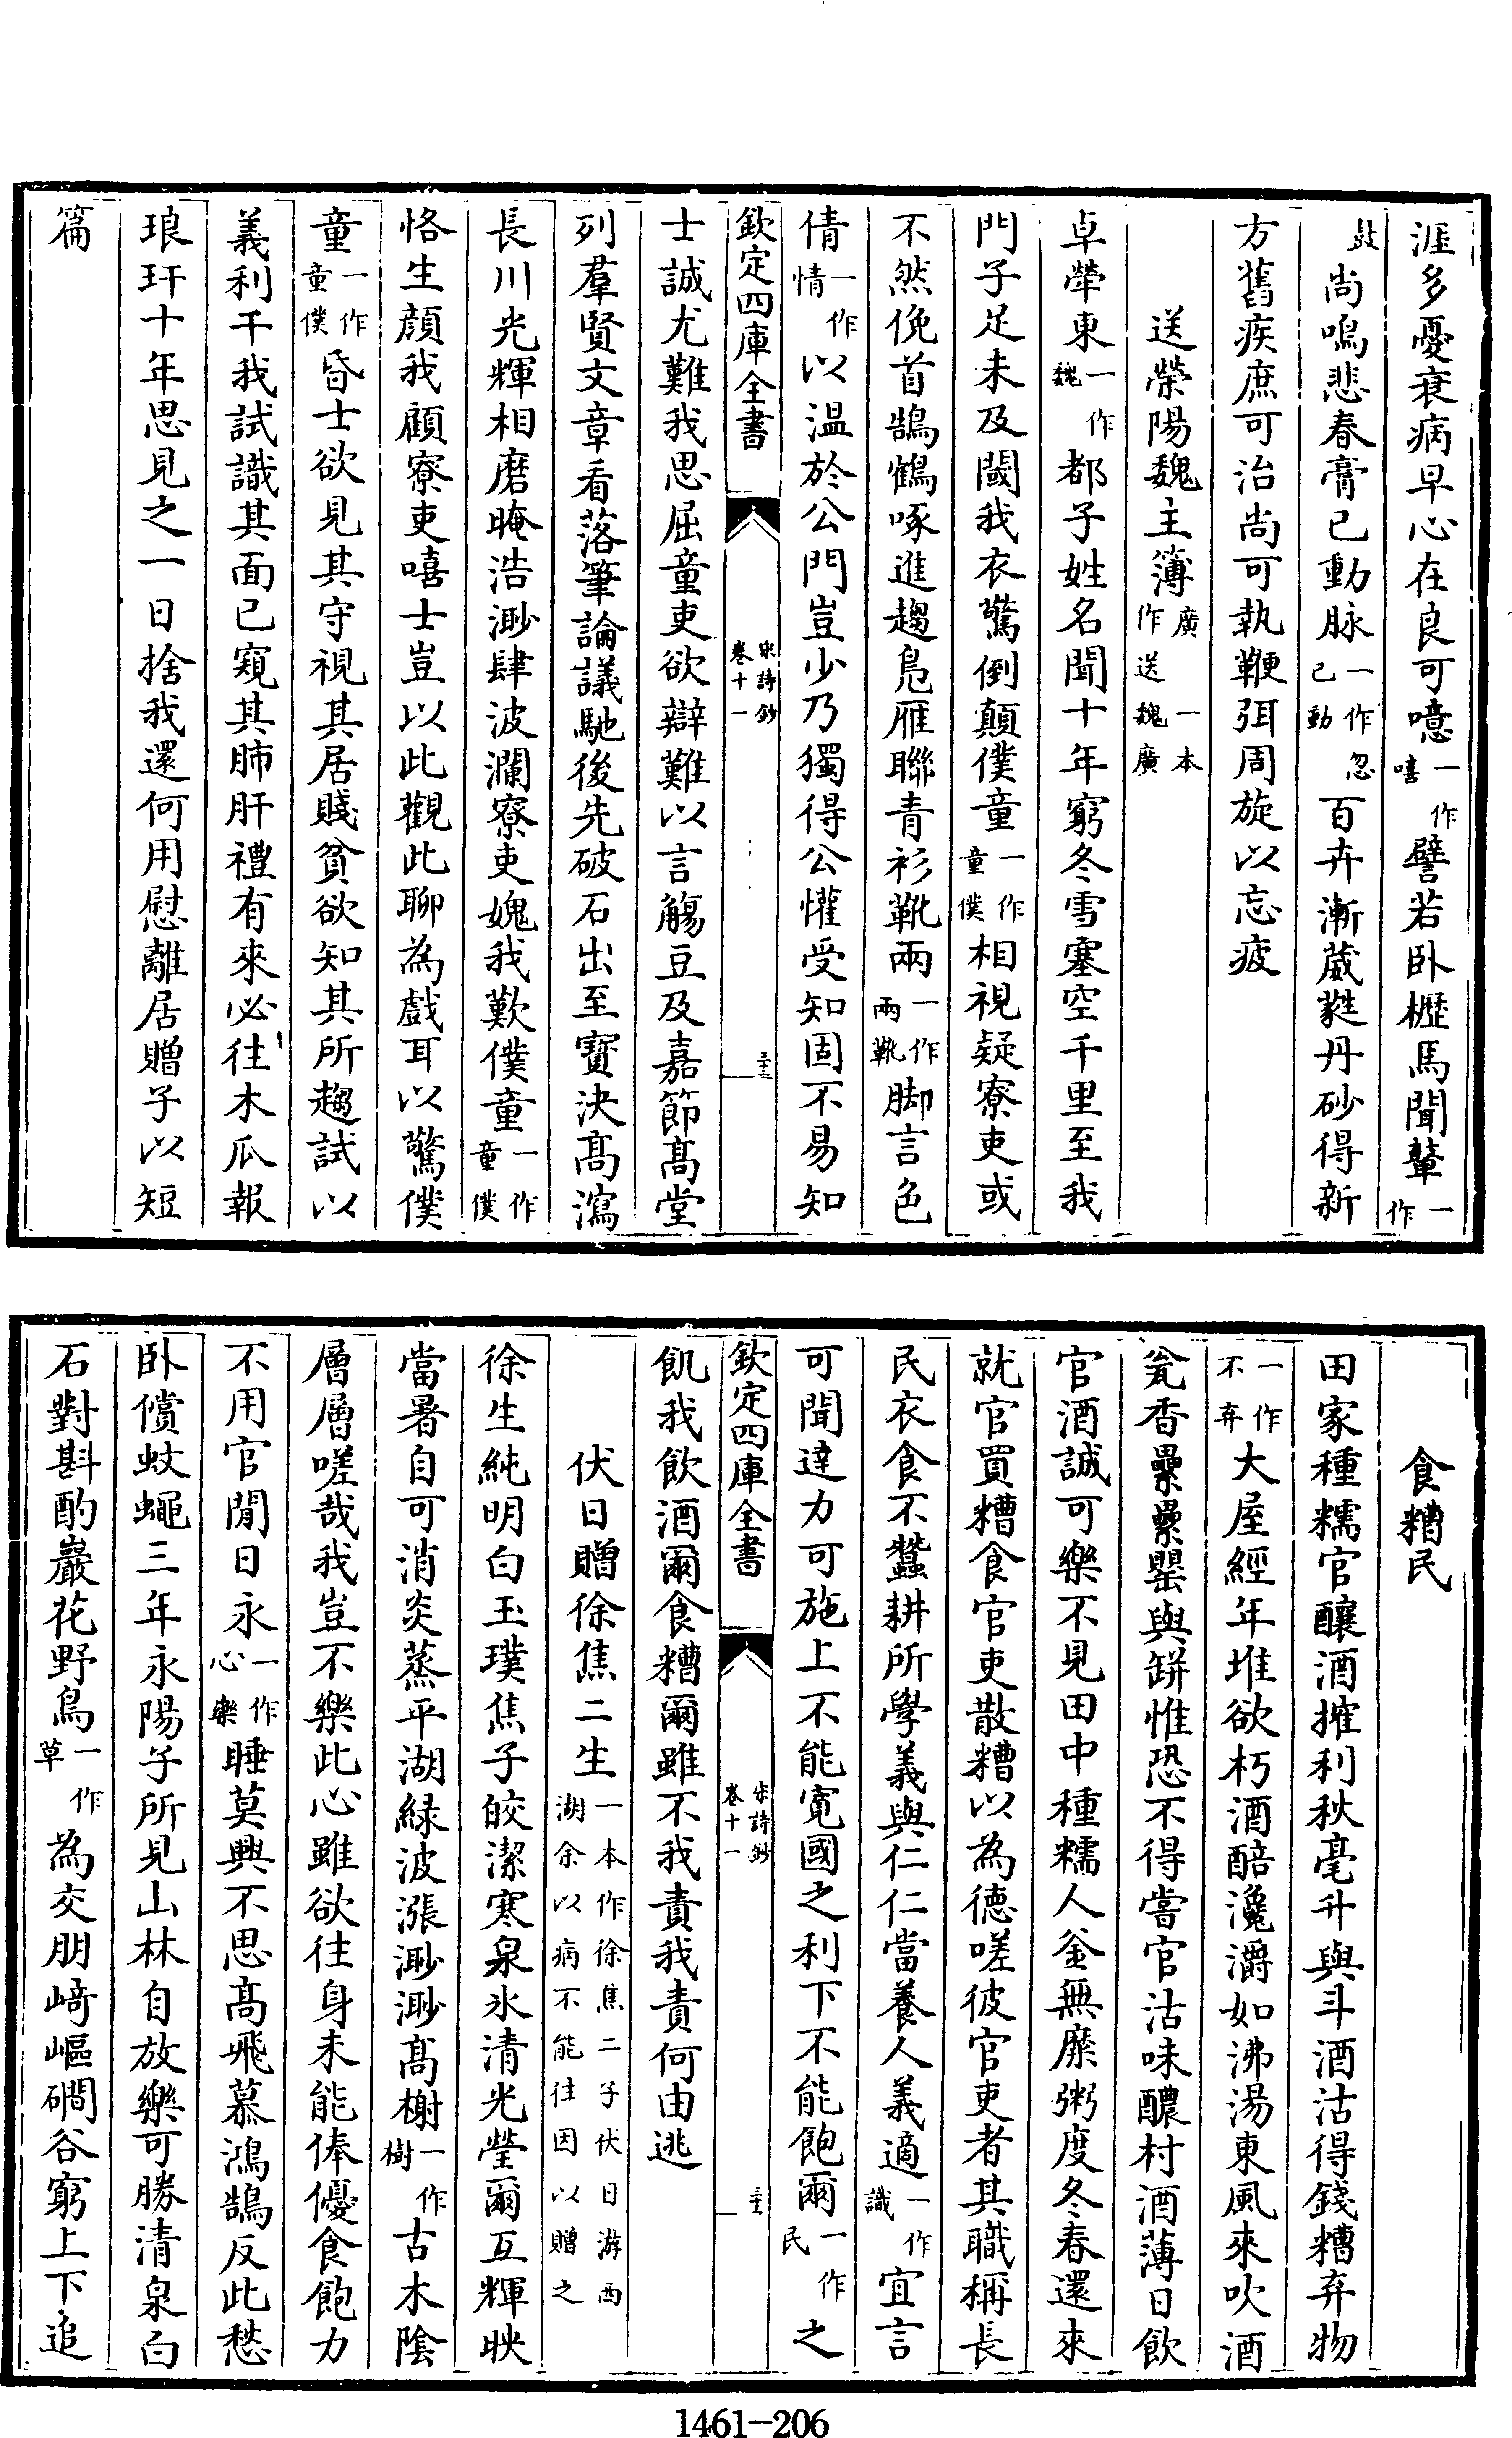 涯多憂衰病早心在良可噫一作嘻譬若卧櫪馬聞鼙一作
鼓尚鳴悲春膏已動脉一作忽已動百卉漸葳蕤丹砂得新
方舊疾庶可治尚可執鞭弭周旋以忘疲
送榮陽魏主簿廣一本作送魏廣
卓犖東一作魏都子姓名聞十年窮冬雪塞空千里至我
門子足未及閾我衣驚倒顛僕童一作童僕相視疑寮吏或
不然俛首鵠鶴啄進趨鳧雁聯青衫靴兩一作兩靴脚言色
倩一作情以温於公門豈少乃獨得公懽受知固不易知
欽定四庫全書
宋詩鈔
卷十一
士誠尤難我思屈童吏欲辯難以言觴豆及嘉節髙堂
列羣賢文章看落筆論議馳後先破石出至寳決髙瀉
長川光輝相磨晻浩渺肆波瀾寮吏媿我歎僕童一作童僕
恪生顔我顧寮吏嘻士豈以此觀此聊為戲耳以驚僕
童一作童僕昏士欲見其守視其居賤貧欲知其所趨試以
義利干我試識其面已窺其肺肝禮有來必往木瓜報
琅玕十年思見之一日捨我還何用慰離居贈子以短
篇
食糟民
田家種糯官釀酒搉利秋毫升與斗酒沽得錢糟弃物
一作不弃大屋經年堆欲朽酒醅瀺灂如沸湯東風來吹酒
瓮香纍纍罌與缾惟恐不得嘗官沽味醲村酒薄日飲
官酒誠可樂不見田中種糯人釜無糜粥度冬春還來
就官買糟食官吏散糟以為德嗟彼官吏者其職稱長
民衣食不蠶耕所學義與仁仁當養人義適一作識宜言
可聞達力可施上不能寛國之利下不能飽爾一作民之
欽定四庫全書
宋詩鈔
卷十一
飢我飲酒爾食糟爾雖不我責我責何由逃
伏日贈徐焦二生一本作徐焦二子伏日游西湖余以病不能往因以贈之
徐生純明白玉璞焦子皎潔寒泉氷清光瑩爾互輝映
當暑自可消炎蒸平湖緑波漲渺渺髙榭一作樹古木陰
層層嗟哉我豈不樂此心雖欲往身未能俸優食飽力
不用官閒日永一作心樂睡莫興不思髙飛慕鴻鵠反此愁
卧償蚊蠅三年永陽子所見山林自放樂可勝清泉白
石對斟酌巖花野鳥一作草為交朋﨑嶇磵谷窮上下追
1461-206